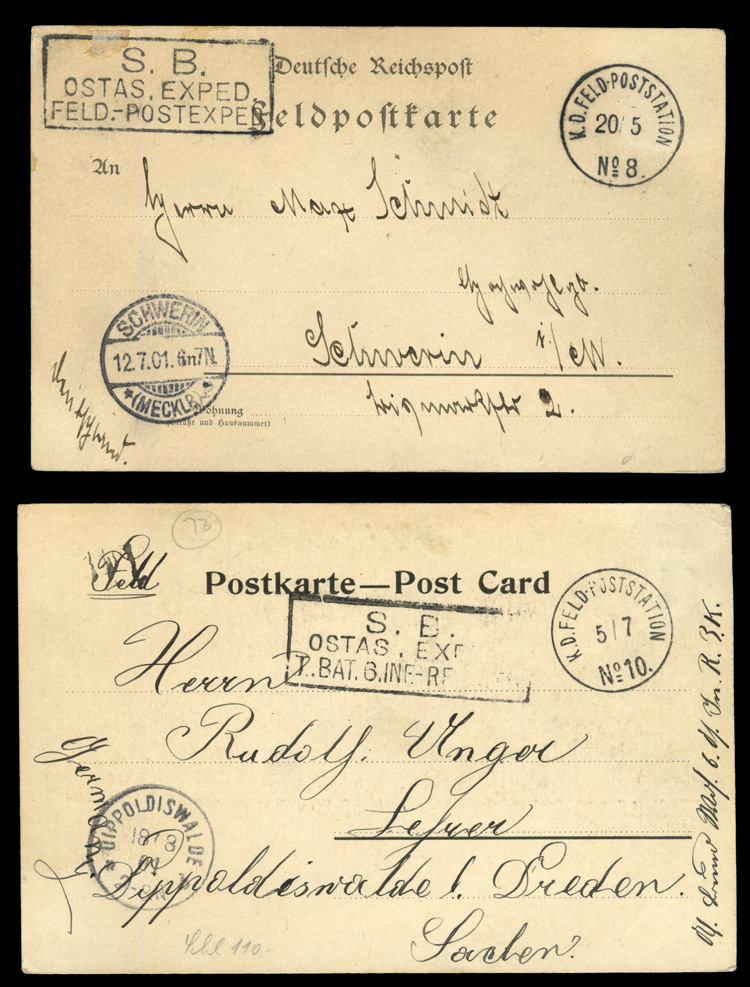 S. B.
OSTAS. EXPED.
FELD.-POSTEXPED
Deutsche Reichspost
Feldpostkarte
K.D. FELD-POSTSTATION
20/5
No 8.
An
Herrn Max Schmidt
SCHWERIN
12.7.01. 6-7N.
* (MECKLB.) *
Schwerin i/M.
Bismarckstr 2.
Wohnung
(Straße und Hausnummer)
Deutschland.
73
Feld
Postkarte—Post Card
S. B.
OSTAS. EXP
I. BAT. 6. INF.-RE
K.D. FELD-POSTSTATION
5/7
No 10.
Herrn
Rudolf Unger
Lehrer
Dippoldiswalde b. Dresden.
Sachsen.
Germany
DIPPOLDISWALDE
18 8
01
6. Inf. R. 3. K.
110-